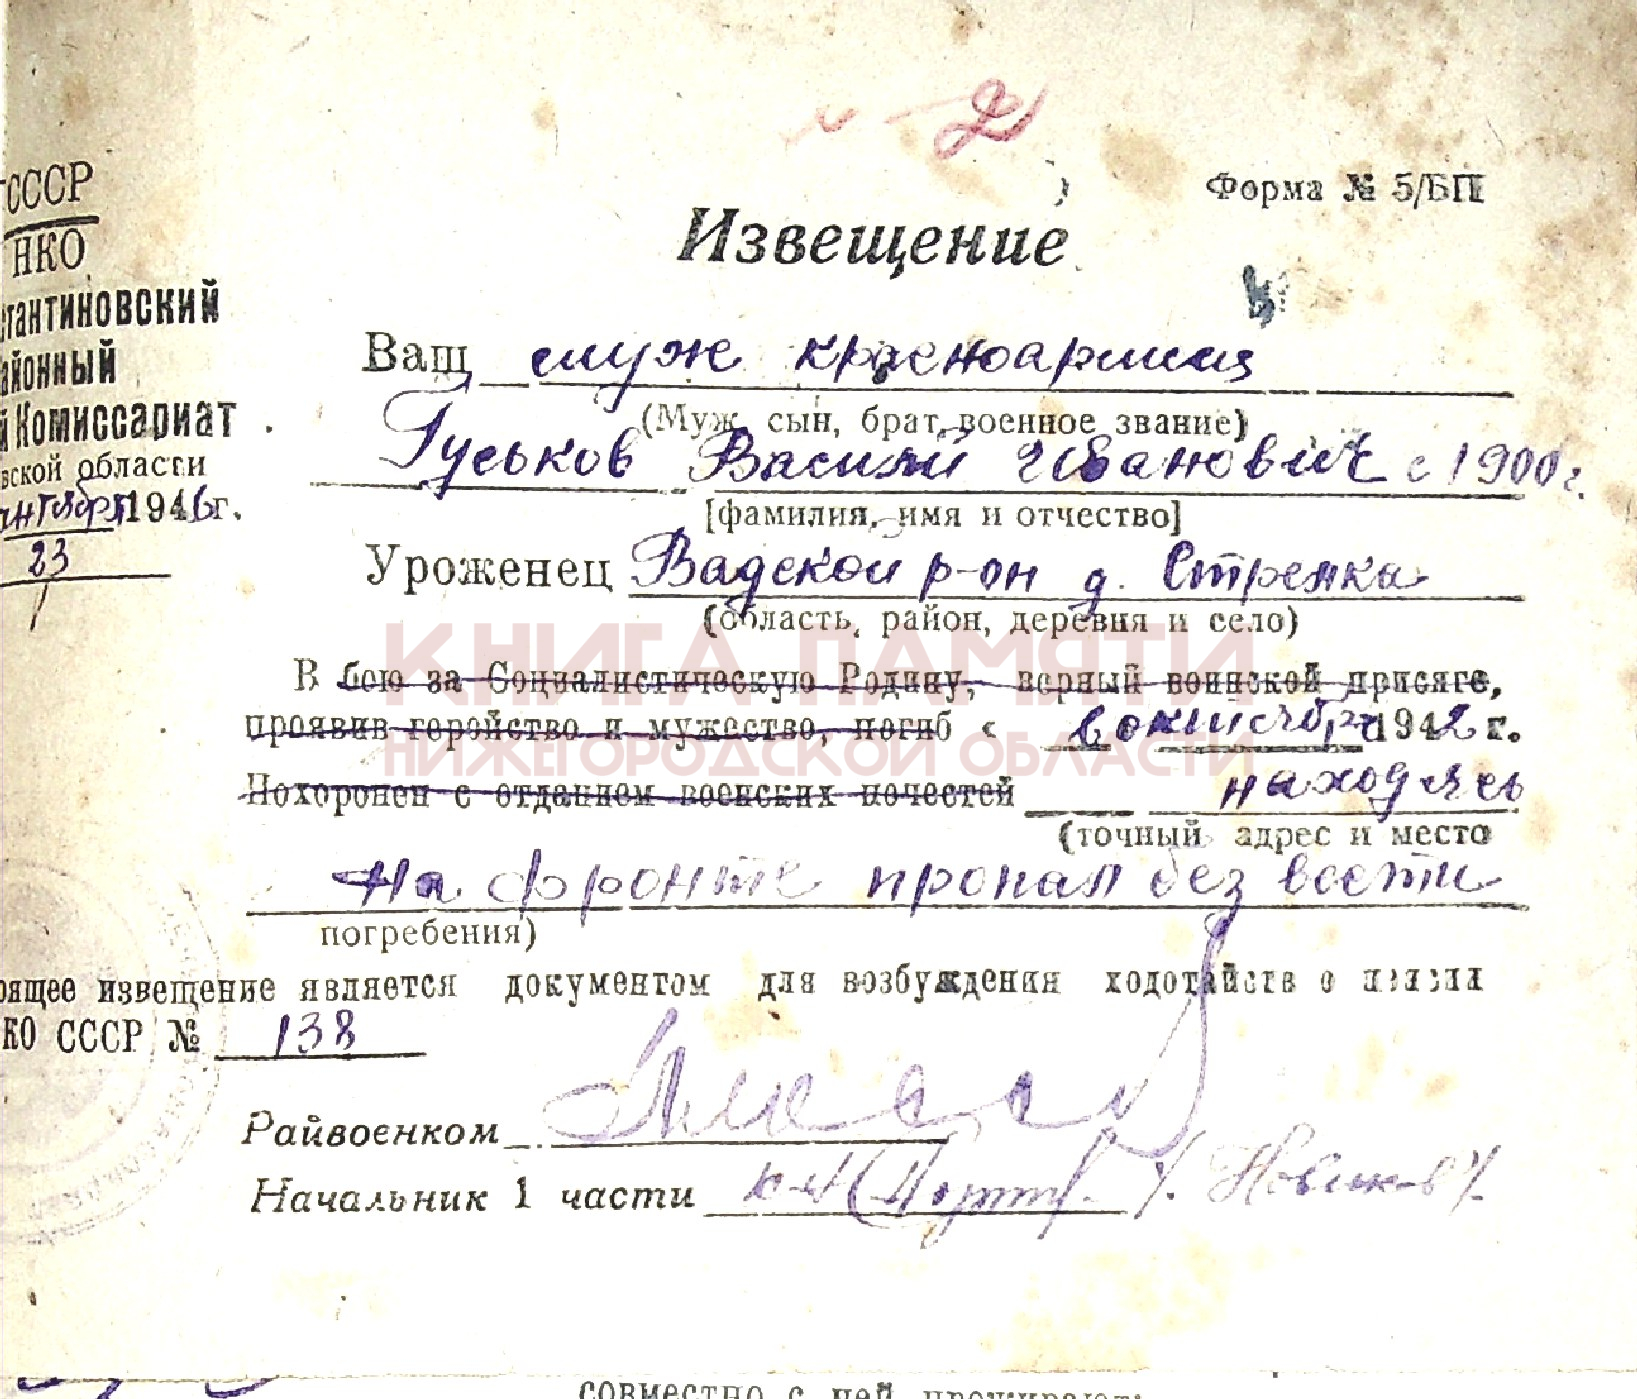 2
Форма № 5/БП
СССР
НКО
Извещение
стантиновский
айонный
й Комиссариат
вской области
1946г.
23
Ваш муж красноармеец
(Муж, сын, брат, военное звание)
Гуськов Василий Иванович с 1900 г.
[фамилия, имя и отчество]
Уроженец Вадской р-он д. Стрелка
(область, район, деревня и село)
КНИГА ПАМЯТИ
В бою за Социалистическую Родину, верный воинской присяге,
проявив геройство и мужество, погиб « в октябре 1942 г.
НИЖЕГОРОДСКОЙ ОБЛАСТИ
Похоронен с отданием воинских почестей находясь
(точный адрес и место
на фронте пропал без вести
погребения)
оящее извещение является документом для возбуждения ходотайств о пенсии
КО СССР № 138
Райвоенком
Начальник 1 части /Новиков/
совместно с ней проживают: